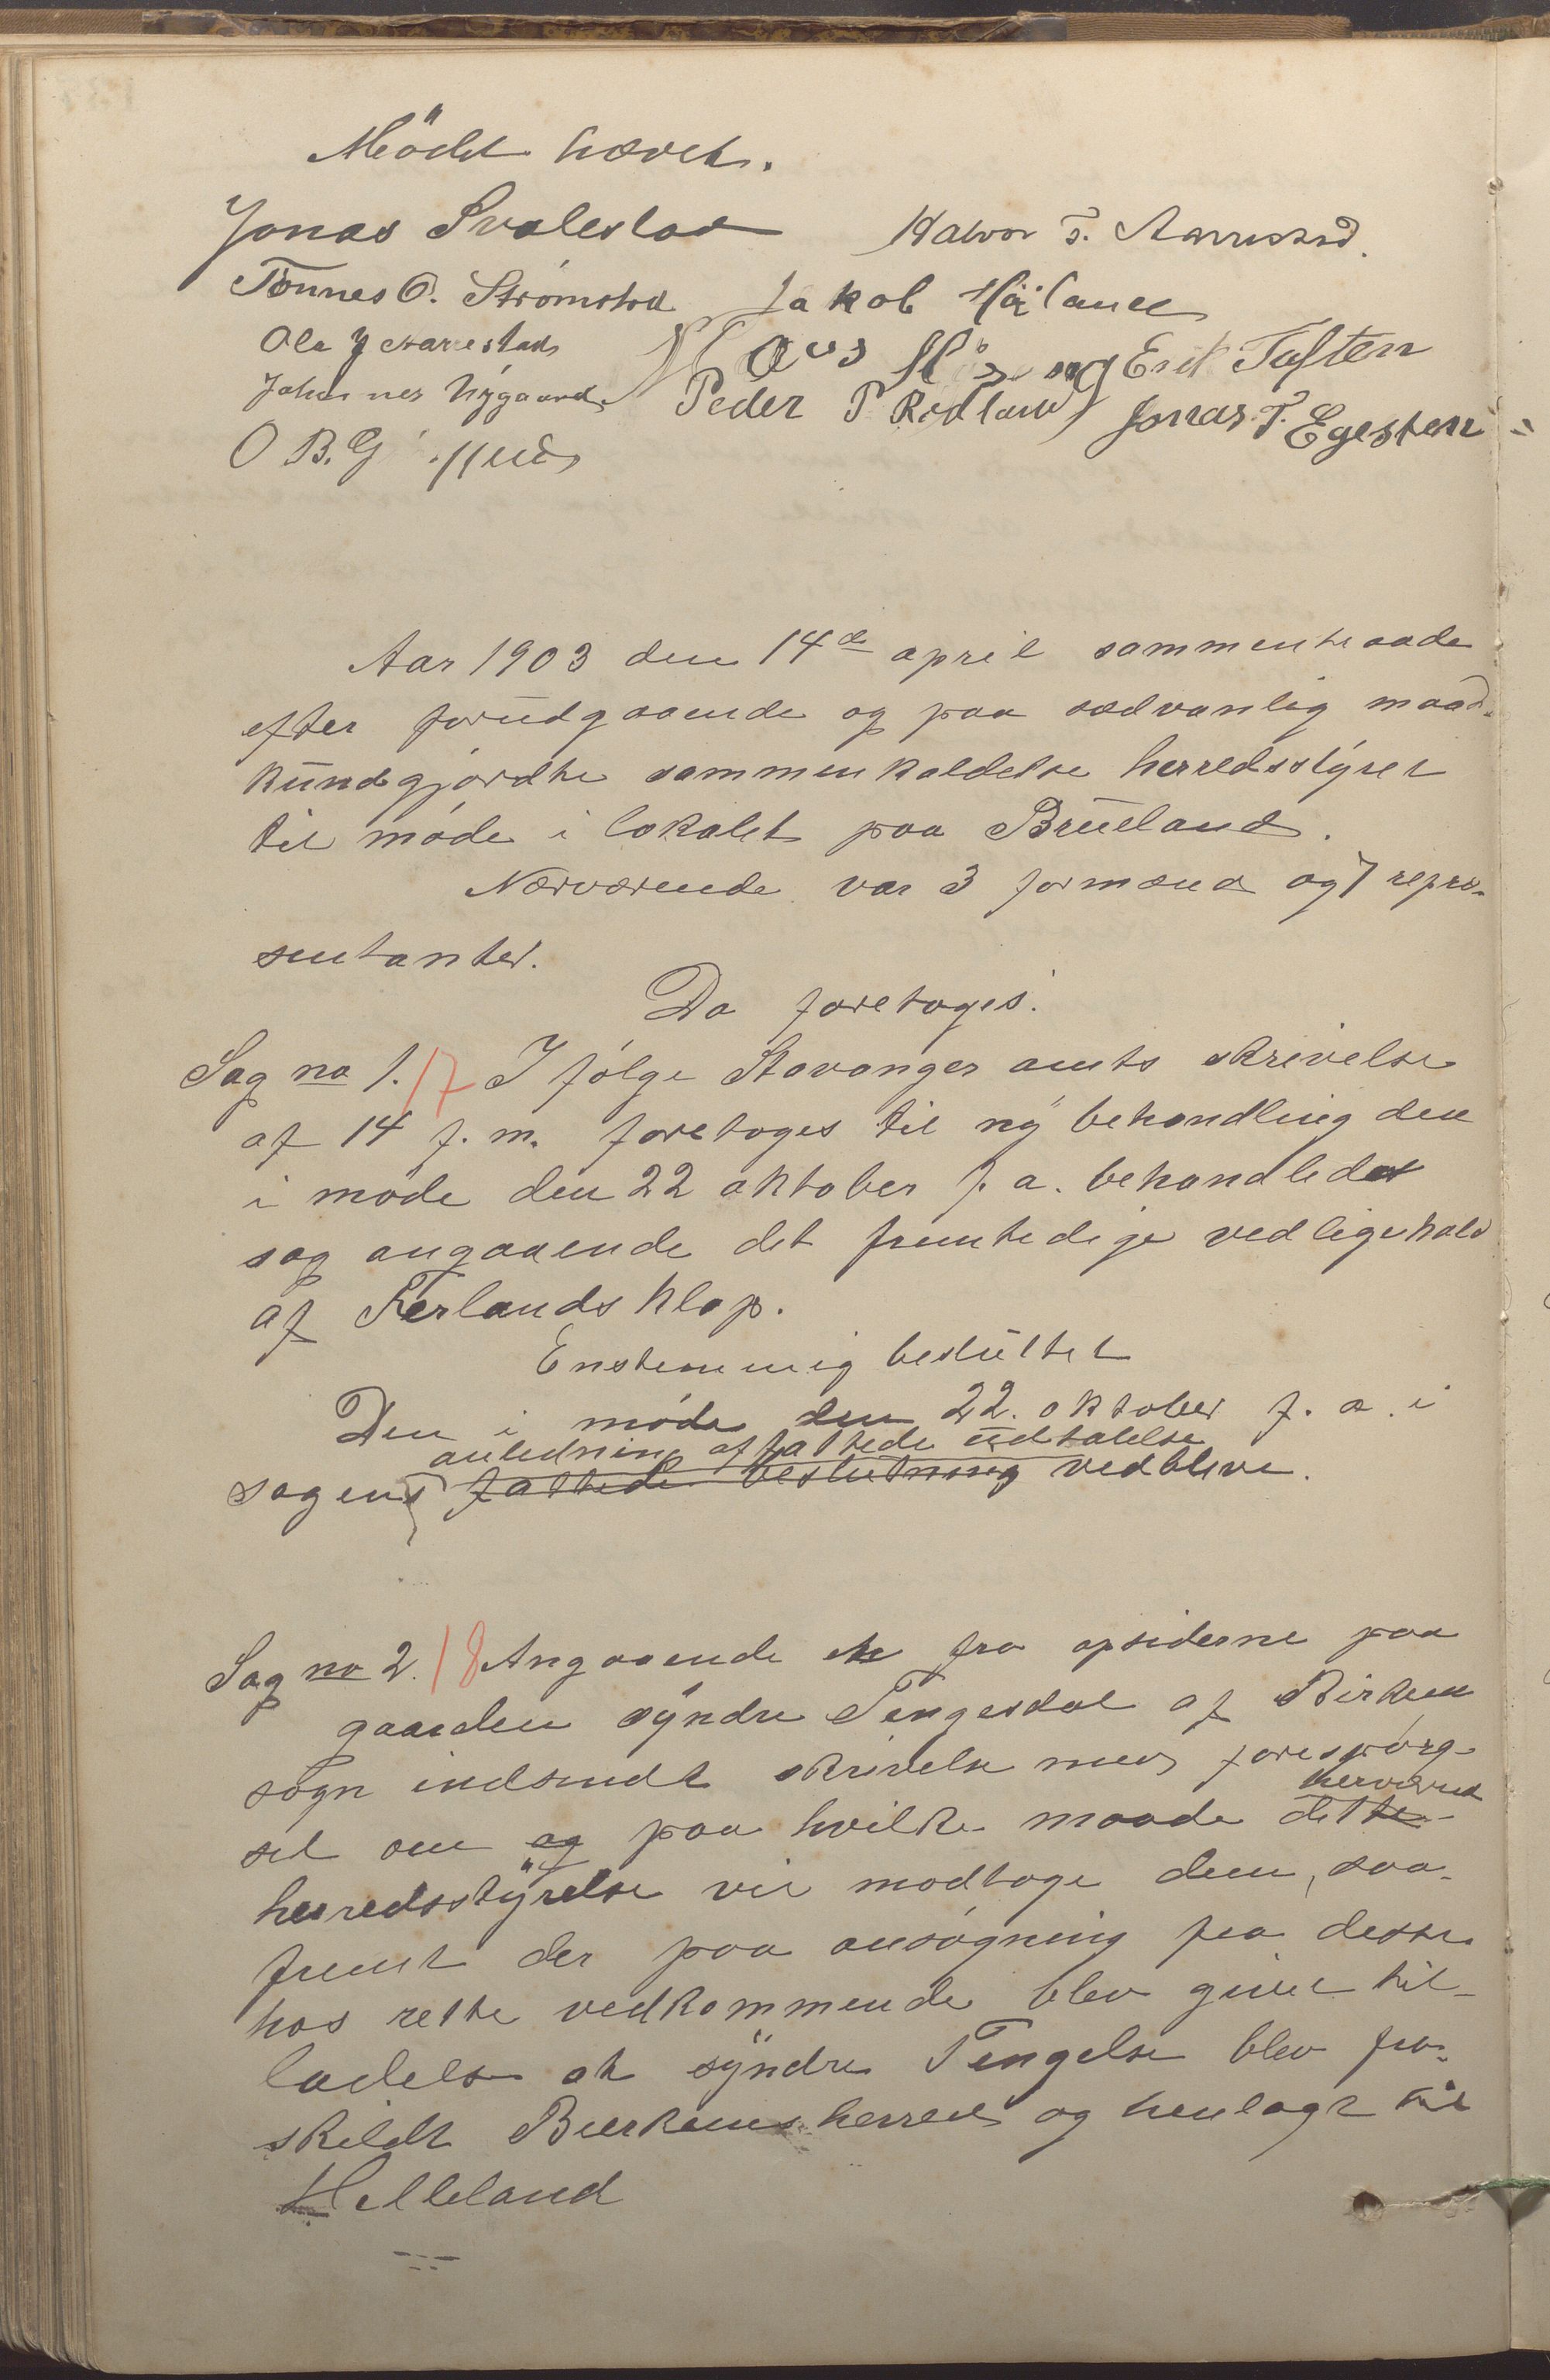 Mödet hævet.
Jonas Svalestad Halvor T. Aarrestad.
Tönnes O. Strømstad Jakob Häiland
Ole J Aarrestad Erik Tuften
Johannes Nygaard Peder P Redland Jonas T. Egesten
O B. G
Aar 1903 den 14de april sammentraade
efter forudgaaende og paa sædvanlig maade
kundgjordte sammenkaldelse herredsstyret
til møde i lokalet paa Brueland.
Nærværende var 3 formænd og 7 repræ-
sentanter.
Da foretoges:
Sag no 1. 17 I følge Stavanger amts skrivelse
af 14 f. m. foretoges til ny behandling den
i møde den 22 oktober f. a. behandledet
sag angaaende det fremtedige vedligehold
af Terlands klop.
Enstemmig besluttet
Den i møde den 22. oktober f. a. i
anledning affattede udtalelse
sagens fattede beslutning vedblive.
Sag no 2. 18 Angaaende en fra opsiderne paa
gaarden syndre Tengesdal af Birkem
sogn indsendt skrivelse med forespørg-
herværend
sel om og paa hvilke maade dette
herredsstyrelse vil modtage dem, saa-
fremt der paa ansøgning fra desse
hos rette vedkommende blev givet til-
ladelse at syndre Tengelse blev fra-
skildt Bierkems herred og henlagt til
Helleland